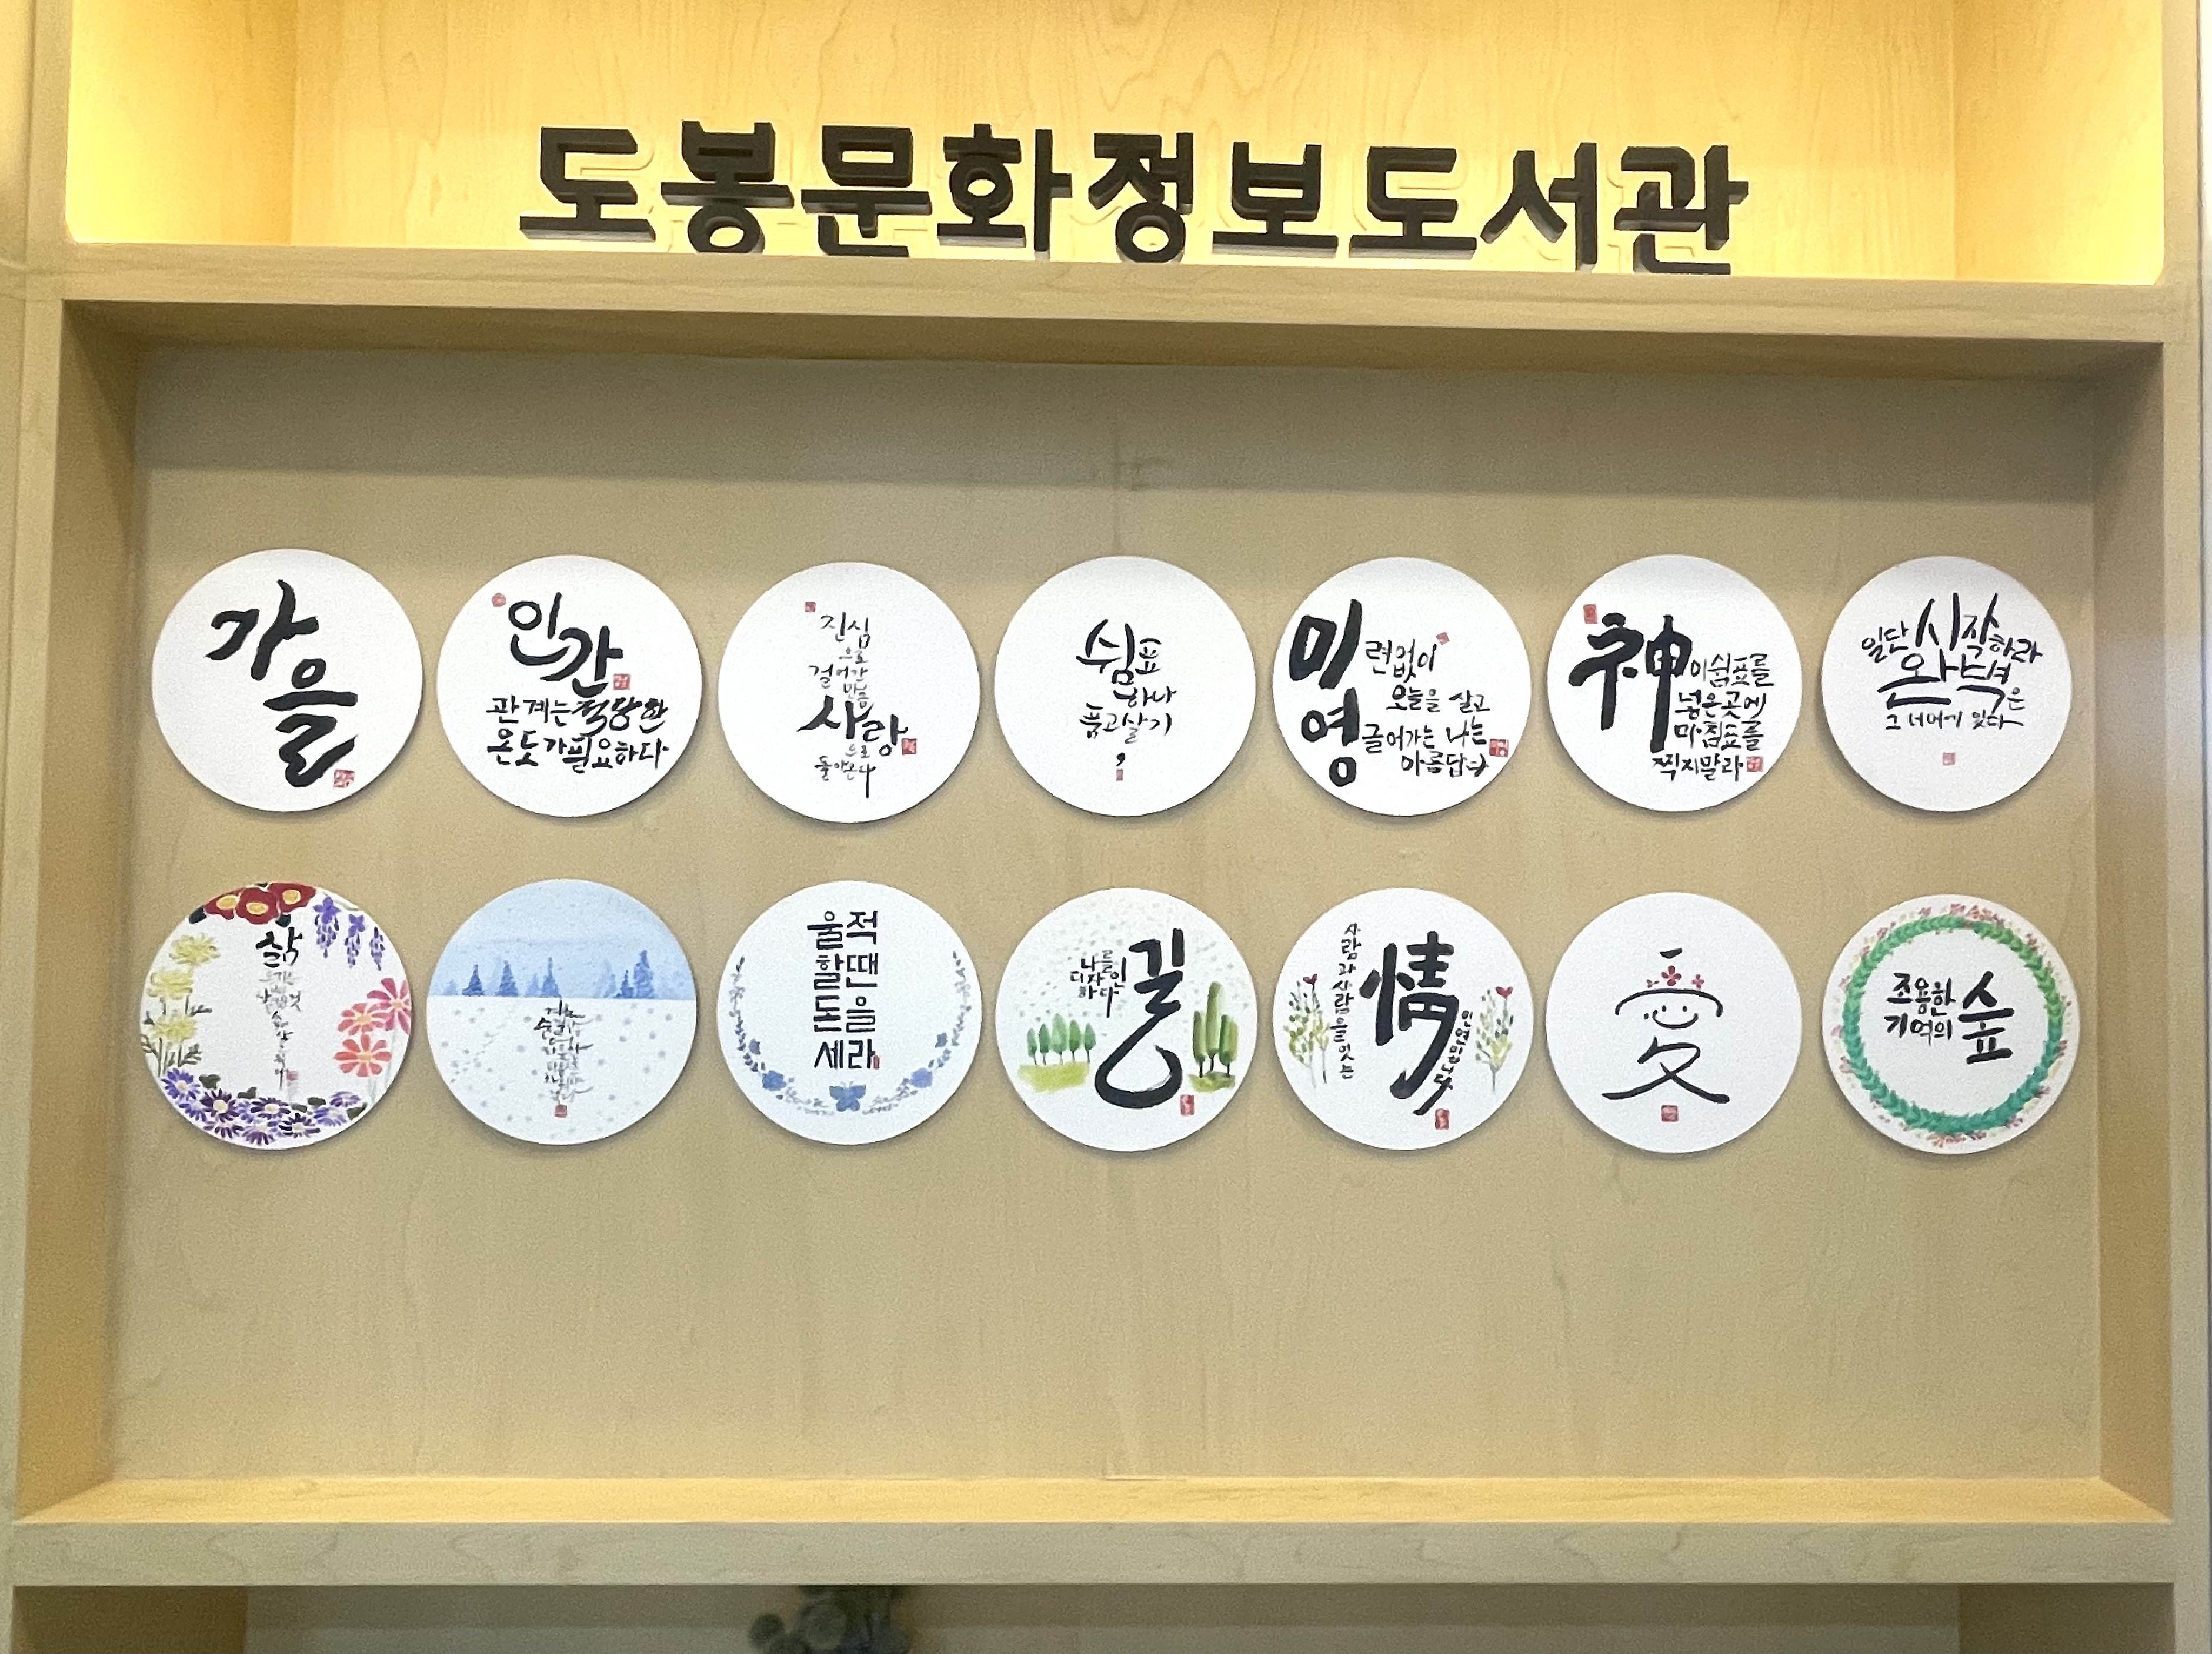 도봉문화정보도서관
가을
인간
관계는 적당한
온도가 필요하다
진심
으로
걸어간
만큼
사랑
으로
돌아온다
쉼표
하나
품고 살기
,
미련없이
오늘을 살고
영글어가는 나는
아름답다
神이 쉼표를
넣은 곳에
마침표를
찍지말라
일단 시작하라
완벽은
그 너머에 있다
삶
울적
할땐
돈을
세라
길
나를
디자인
하다
사람과 사람을 잇는
情
愛
조용한
기억의
숲